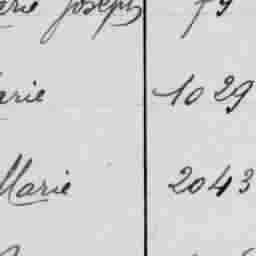 Joseph 79
arie 1029
Marie 2043